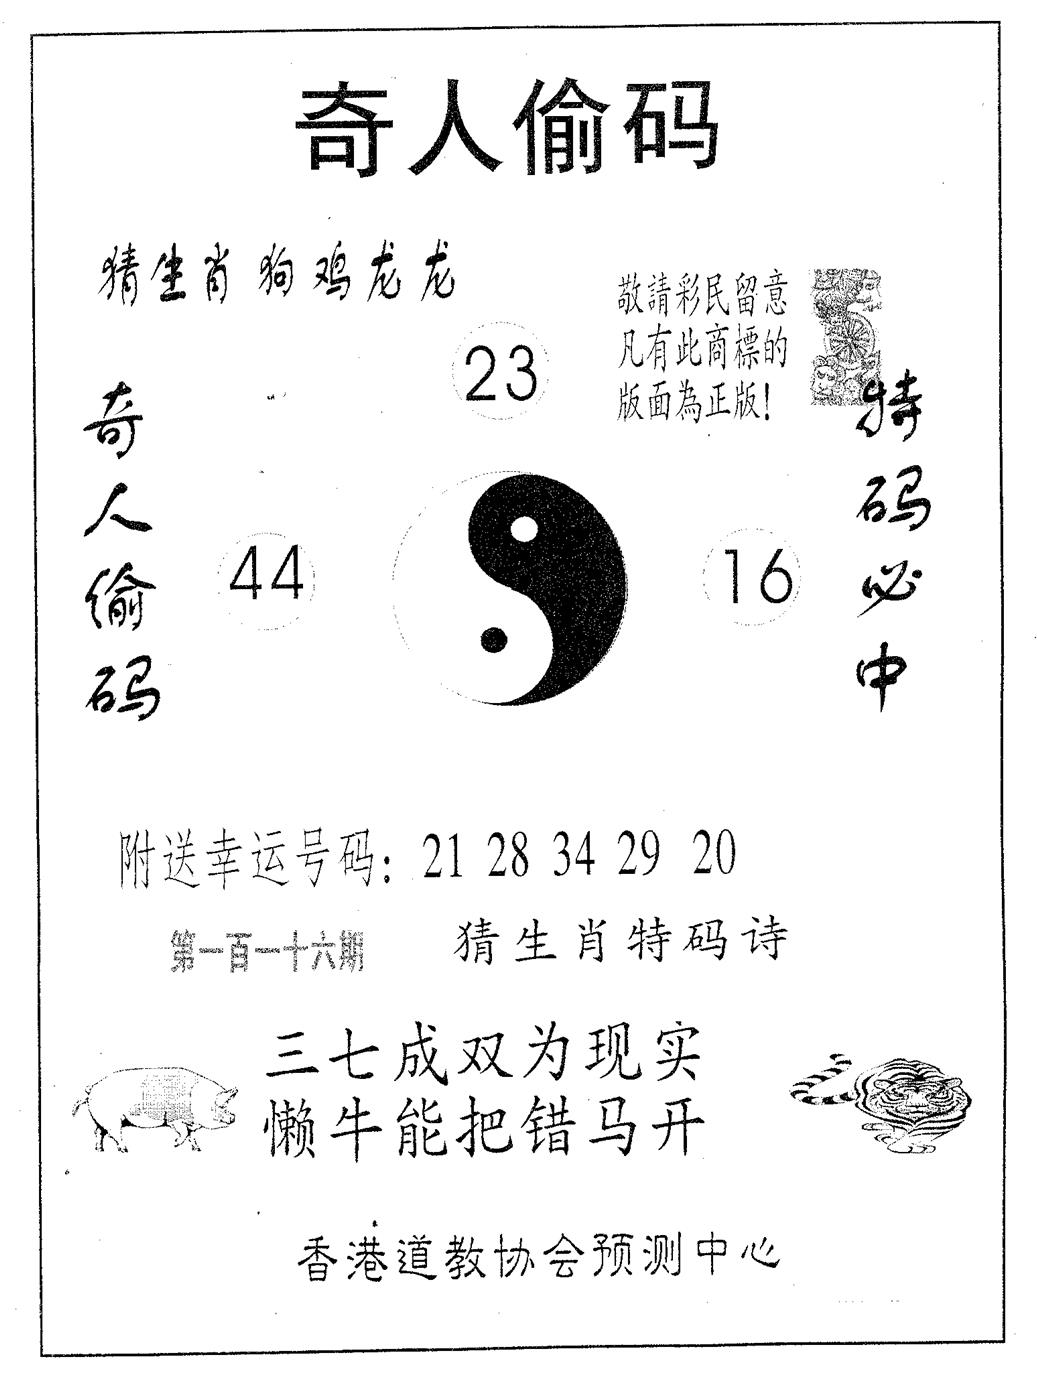 奇人偷码
猜生肖狗鸡龙龙
敬請彩民留意
凡有此商標的
版面為正版!
23
奇人偷码
44
16
特码必中
附送幸运号码: 21 28 34 29 20
第一百一十六期
猜生肖特码诗
三七成双为现实
懒牛能把错马开
香港道教协会预测中心